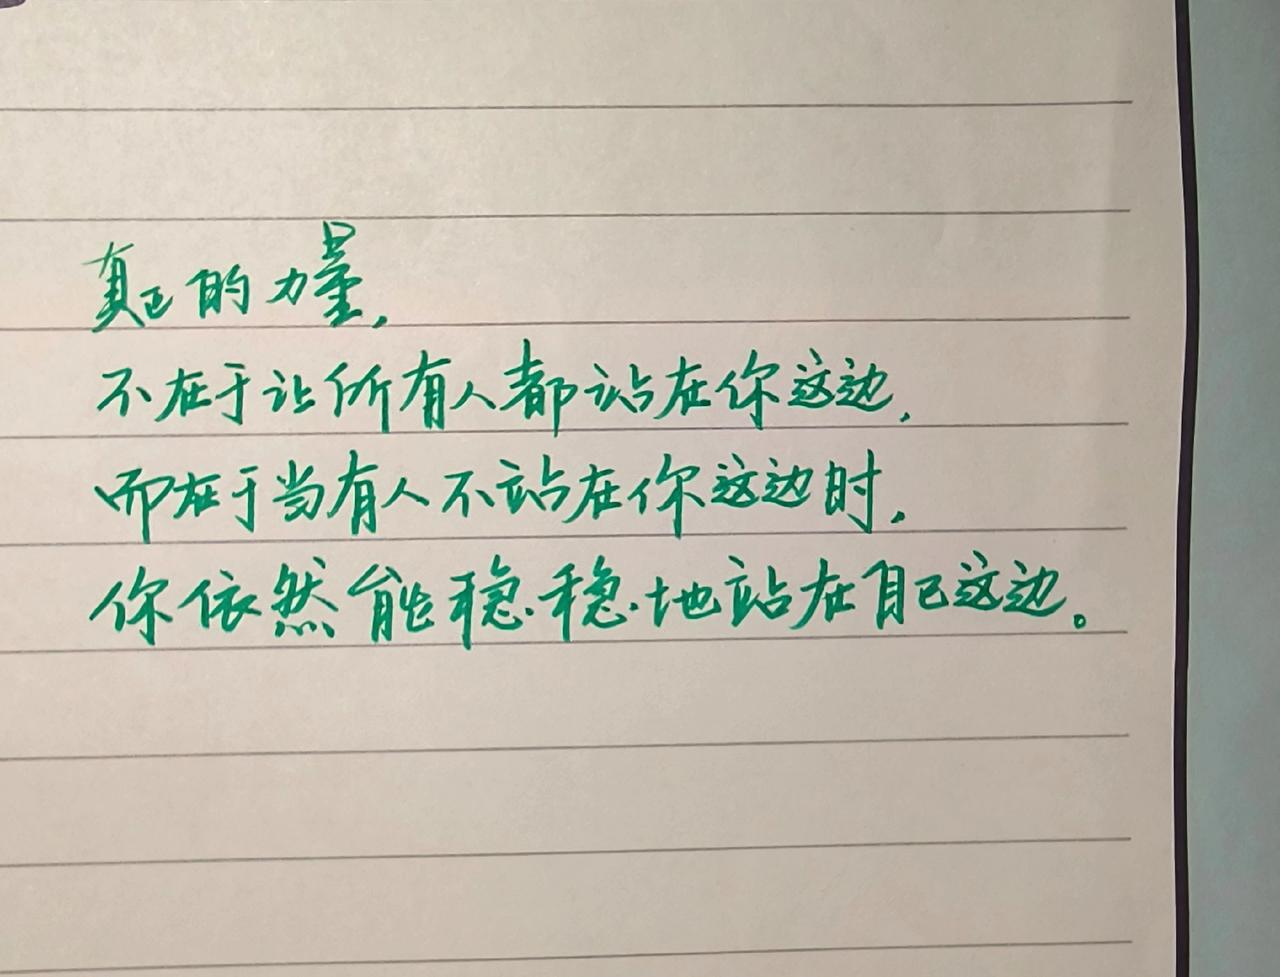 真正的力量，
不在于让所有人都站在你这边，
而在于当有人不站在你这边时，
你依然能稳稳地站在自己这边。